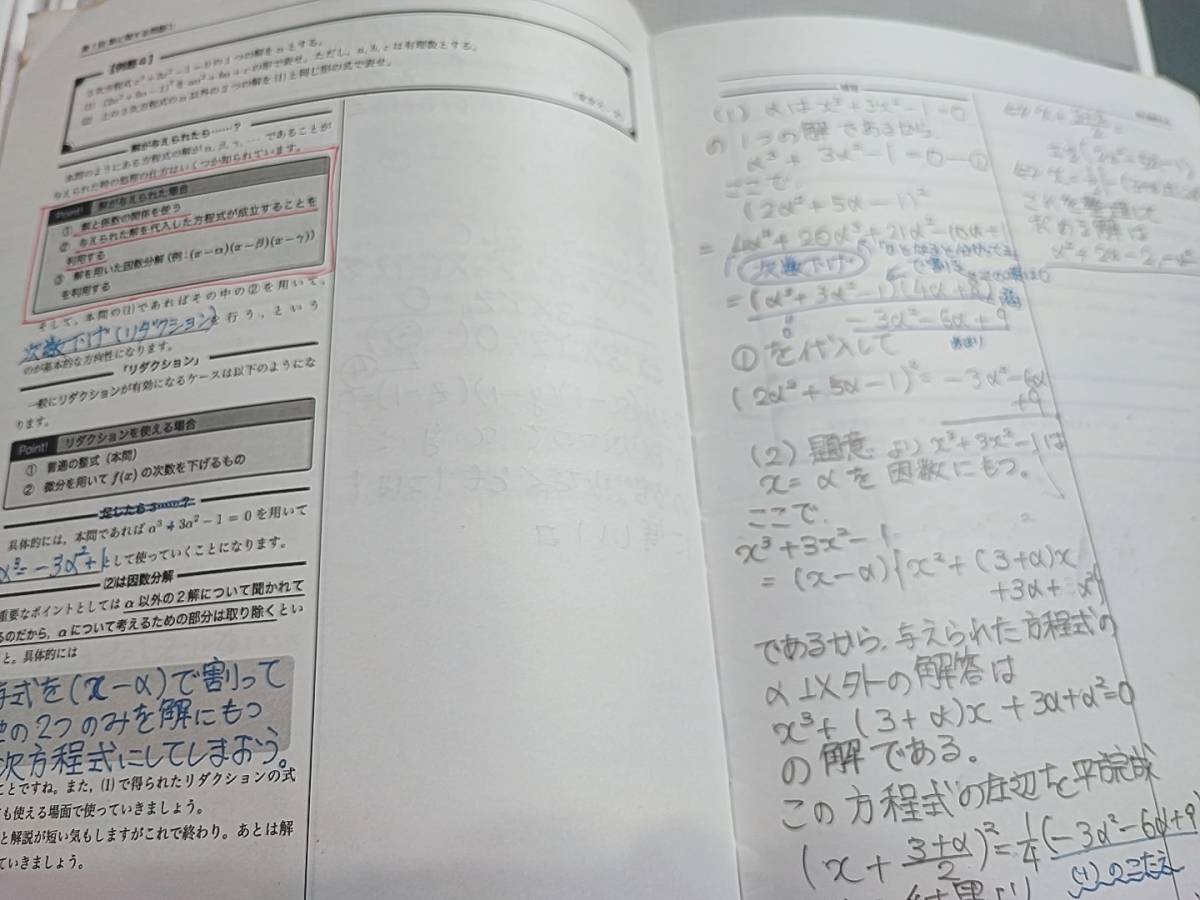 第1回 数に関する問題1
【例題4】
3次方程式x³+3x²-1=0の1つの解をαとする。
(1) (2α²+5α-1)²をaα²+bα+cの形で表せ。ただし，a, b, cは有理数とする。
(2) 上の3次方程式のα以外の2つの解を(1)と同じ形の式で表せ。
解が与えられたら……?
本問のようにある方程式の解がα, β, γ, …であることが
与えられた時の処理の仕方はいくつか知られています。
Point! 解が与えられた場合
① 解と係数の関係を使う
② 与えられた解を代入した方程式が成立することを
利用する
③ 解を用いた因数分解(例：(x-α)(x-β)(x-γ))
を利用する
そして，本問の(1)であればその中の②を用いて，
次数下げ(リダクション)を行う，という
のが基本的な方向性になります。
「リダクション」
一般にリダクションが有効になるケースは以下のようにな
ります。
Point! リダクションを使える場合
① 普通の整式(本問)
② 微分を用いてf(x)の次数を下げるもの
足したら3……?
具体的には，本問であればα³+3α²-1=0を用いて
α³=-3α²+1として使っていくことになります。
(2)は因数分解
重要なポイントとしてはα以外の2解について聞かれて
るのだから，αについて考えるための部分は取り除くとい
と。具体的には
式を(x-α)で割って
の2つのみを解にもつ
次方程式にしてしまおう。
ことですね。また，(1)で得られたリダクションの式
も使える場面で使っていきましょう。
と解説が短い気もしますがこれで終わり。あとは解
ていきましょう。
(1) αはx³+3x²-1=0
の1つの解であるから、
α³+3α²-1=0-①
ここで、
(2α²+5α-1)²
=4α⁴+20α³+21α²-10α+1
次数下げ
=(α³+3α²-1)(4α+8)
0
-3α²-6α+9
あまり
①を代入して
(2α²+5α-1)²=-3α²-6α
+9
(2) 題意よりx³+3x²-1は
x=αを因数にもつ。
ここで、
x³+3x²-1
=(x-α){x²+(3+α)x
+3α+α²}
であるから、与えられた方程式の
α以外の解答は
x³+(3+α)x+3α+α²=0
の解である。
この方程式の左辺を平方完成
(x+3+α/2)²=1/4(-3α²-6α+9)
(1)のこたえ
結果より
これを
求める解は